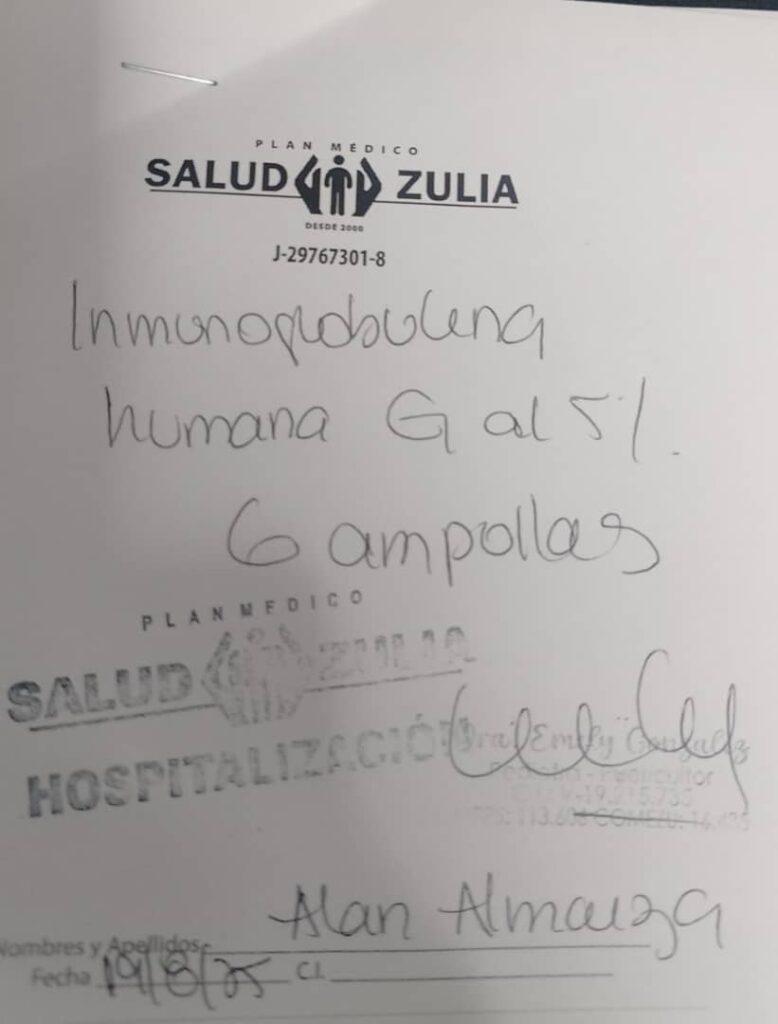 PLAN MÉDICO
SALUD ZULIA
DESDE 2000
J-29767301-8
Inmunoglobulina
humana G al 5%.
6 ampollas
PLAN MEDICO
SALUD ZULIA
HOSPITALIZACIÓN
Dra. Emily González
Pediatra - Puericultor
19.215.735
113.60 COMEZU: 16.4
Alan Almarza
Nombres y Apellidos
Fecha 19/8/25 C.I.